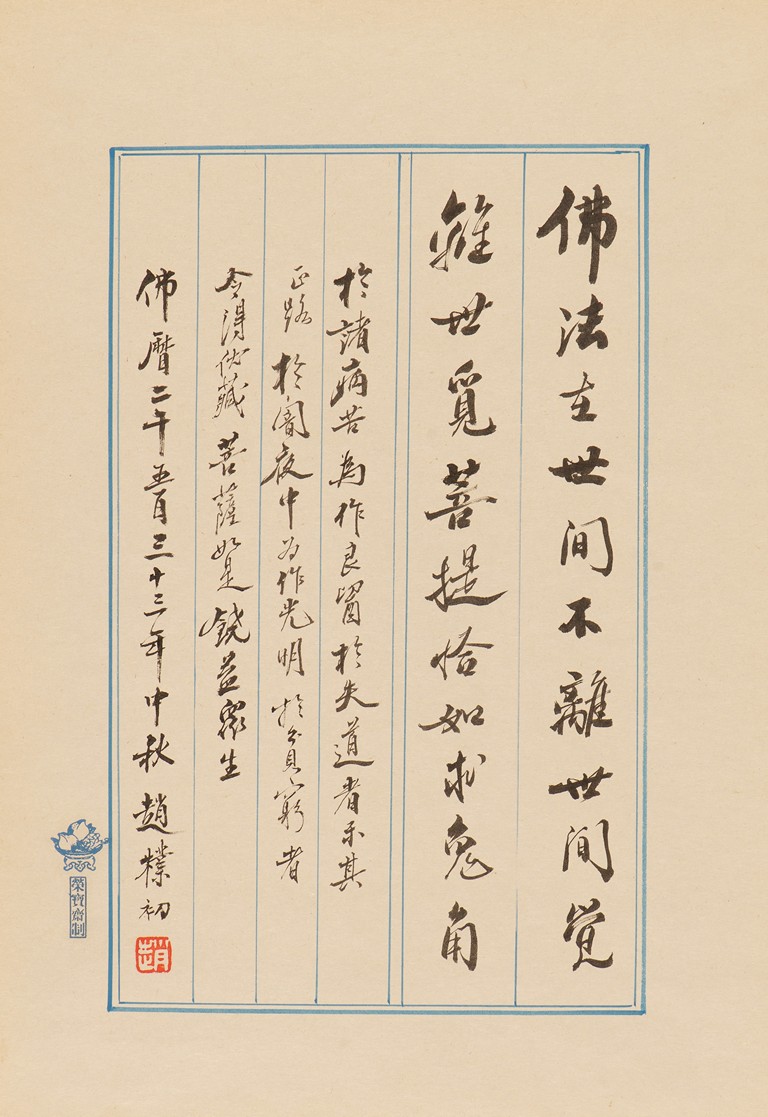 佛法在世間不離世間覺
離世覓菩提恰如求兔角
於諸病苦為作良醫於失道者示其
正路於闇夜中為作光明於貧窮者
令得伏藏菩薩如是饒益眾生
佛曆二千五百三十三年中秋趙樸初
趙
榮寶齋制